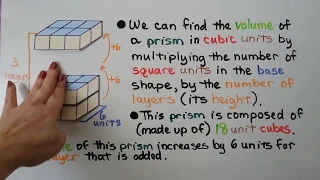 ● We can find the volume of
a prism in cubic units by
multiplying the number of
square units in the base
shape, by the number of
layers (its height).
● This prism is composed of
(made up of) 18 unit cubes.
of this prism increases by 6 units for
layer that is added.
3
layers
+6
+6
6
units